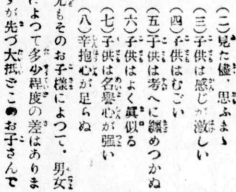 (二)見た儘、思ふまゝ
(三)子供は感じが激しい
(四)子供はむごい
(五)子供は考へが纏めつかぬ
(六)子供はよく眞似る
(七)子供は名譽心が强い
(八)辛抱心が足らぬ
尤もそのお子樣によつて、男女
によつて多少程度の差はありま
すが先づ大抵どこのお子さんで